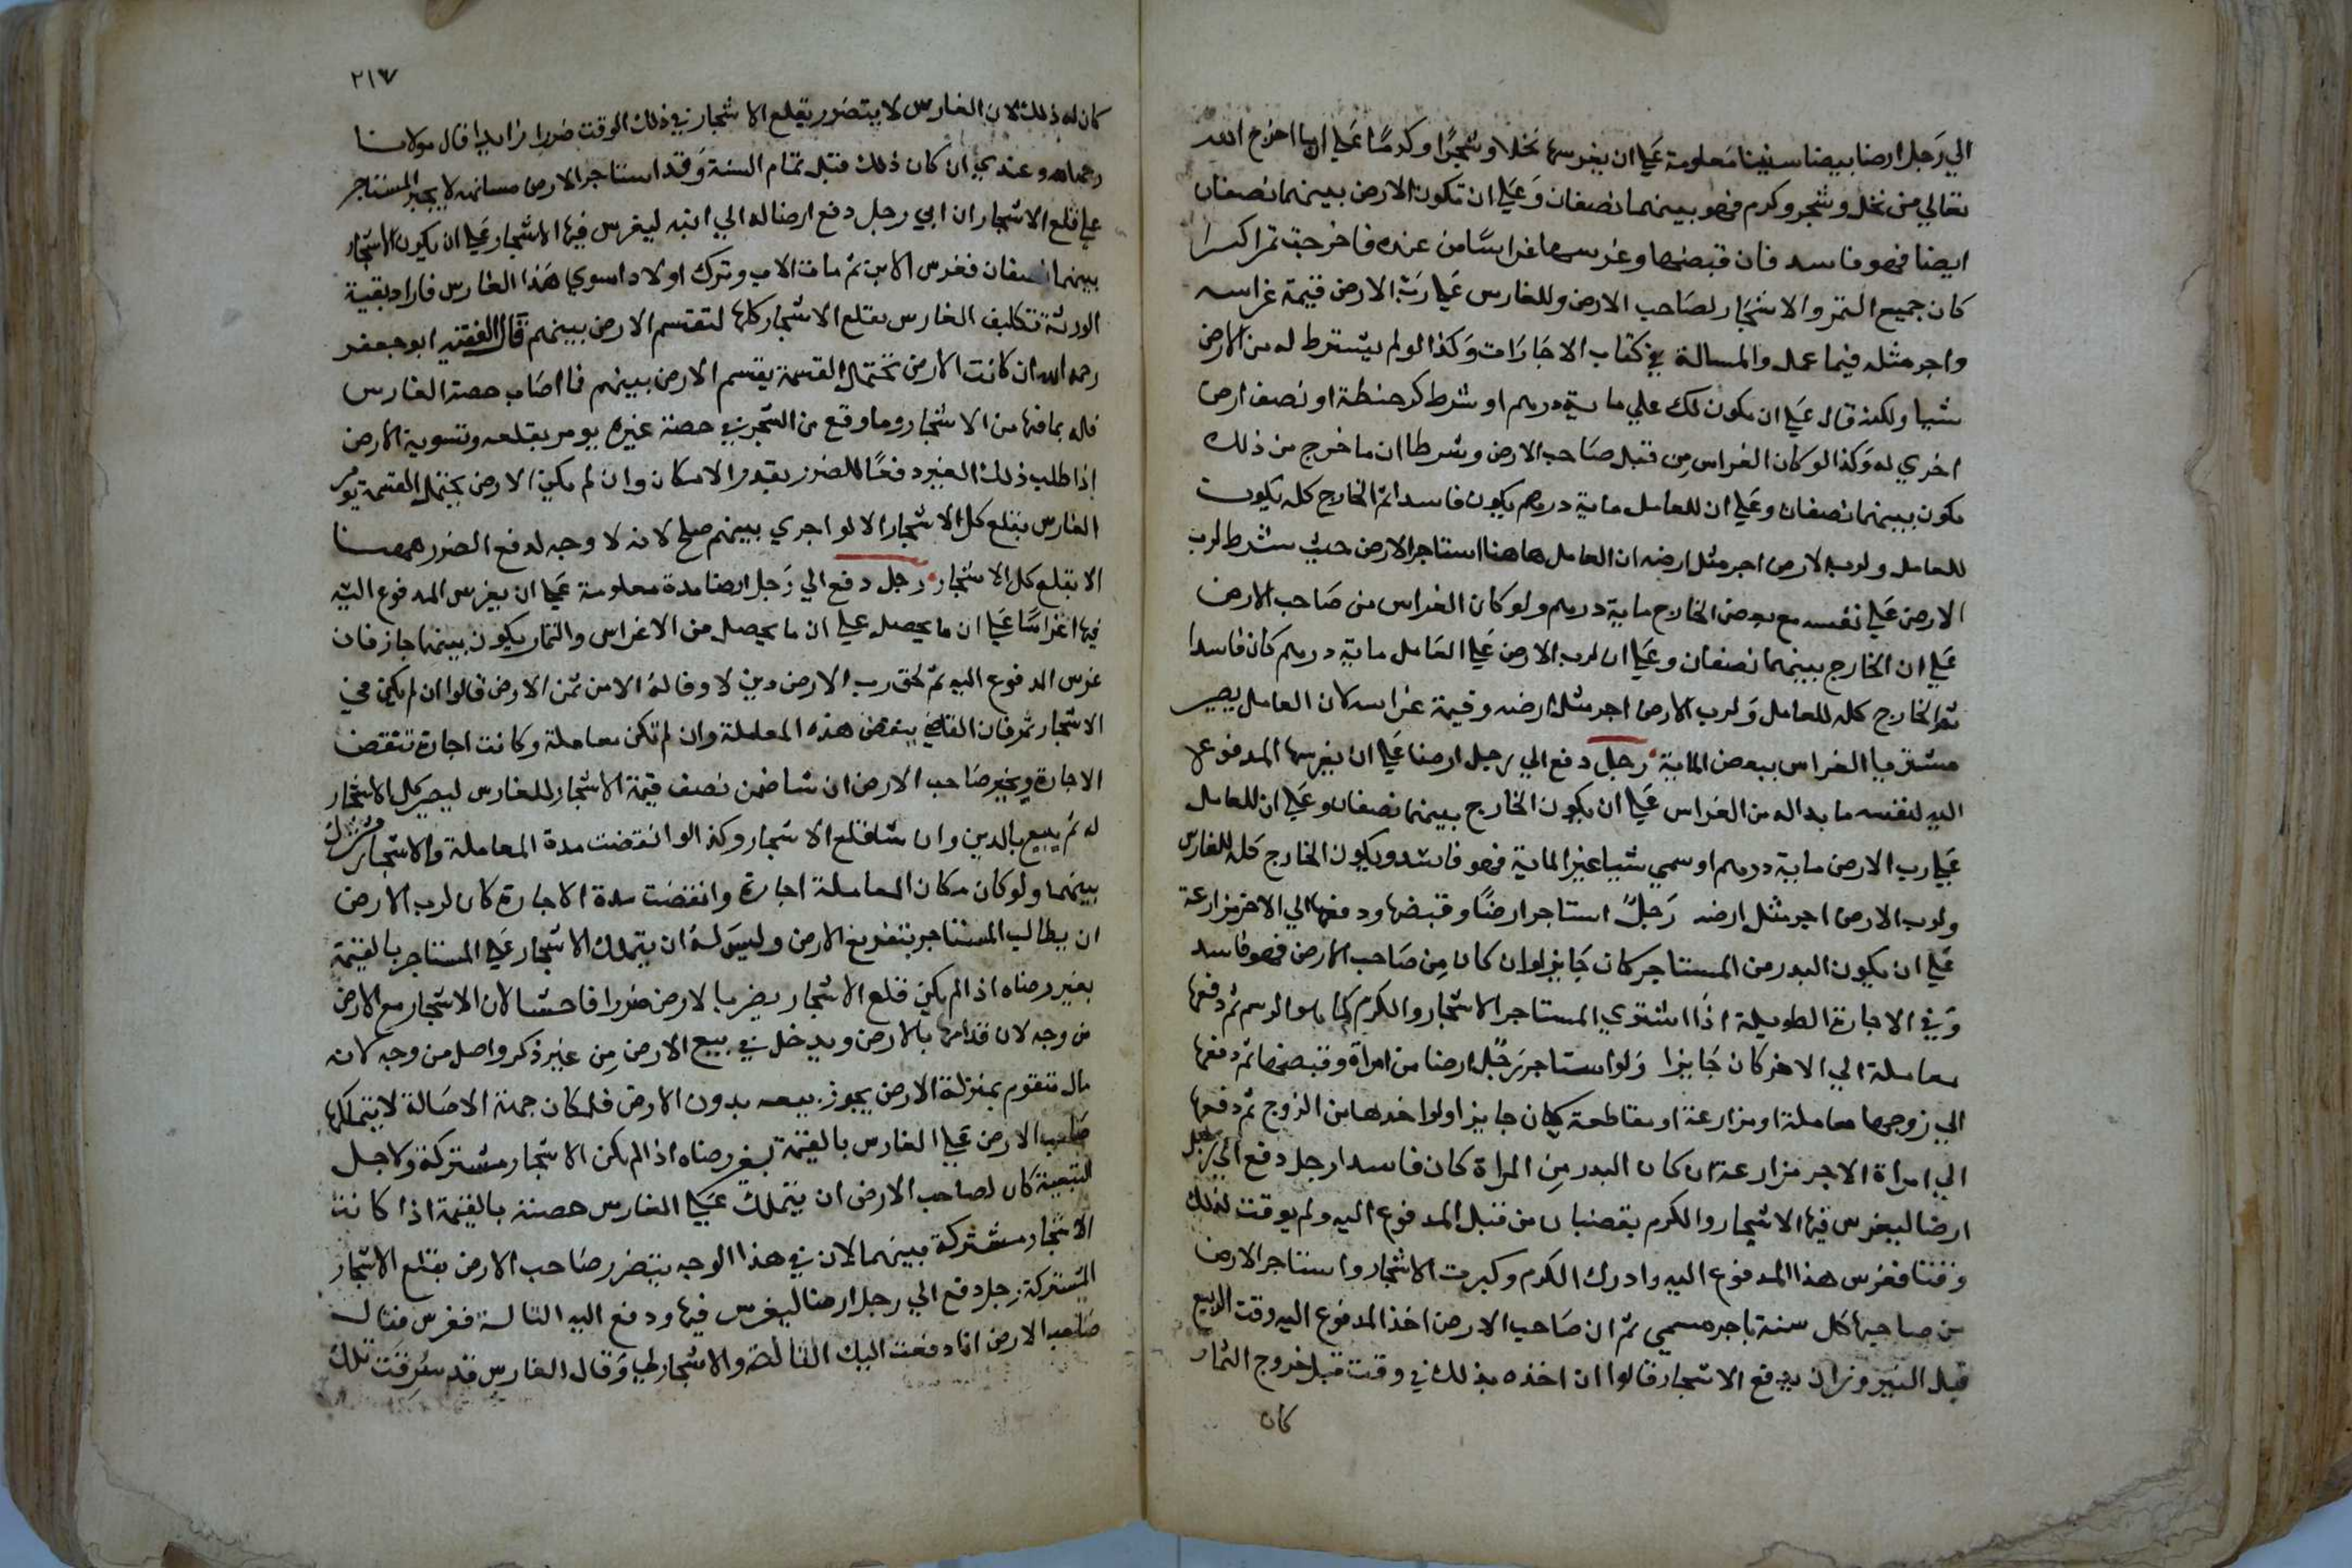 الي رجل ارضا بيضا سنينا معلومة علي ان يغرسها نخلا وشجرا وكرما علي ان ما اخرج الله
تعالي من نخل وشجر وكرم فهو بينهما نصفان وعلي ان تكون الارض بينهما نصفان
ايضا فهو فاسد فان قبضها وغرسها غراسا من عنده فاخرجت ثمرا كثيرا
كان جميع الثمر والاشجار لصاحب الارض وللغارس علي رب الارض قيمة غراسه
واجر مثله فيما عمل والمسالة في كتاب الاجارات وكذا لو لم يشترط له من الارض
شيا ولكنه قال علي ان يكون لك علي ماية درهم او شرط كر حنطة او نصف ارض
اخري له وكذا لو كان الغراس من قبل صاحب الارض وشرطا ان ما خرج من ذلك
يكون بينهما نصفان وعلي ان للعامل ماية درهم يكون فاسدا ثم الخارج كله يكون
للعامل ولرب الارض اجر مثل ارضه ان العامل هاهنا استاجر الارض حيث شرط لرب
الارض علي نفسه مع بعض الخارج ماية درهم ولو كان الغراس من صاحب الارض
علي ان الخارج بينهما نصفان وعلي ان لرب الارض علي العامل ماية درهم كان فاسدا
ثم الخارج كله للعامل ولرب الارض اجر مثل ارضه وقيمة غراسه كان العامل يصير
مشتريا الغراس ببعض الماية رجل دفع الي رجل ارضا علي ان يغرسها المدفوع
اليه لنفسه ما بدا له من الغراس علي ان يكون الخارج بينهما نصفان وعلي ان للعامل
علي رب الارض ماية درهم او سمي شيا غير الماية فهو فاسد ويكون الخارج كله للغارس
ولرب الارض اجر مثل ارضه رجل استاجر ارضا وقبضها ودفعها الي الاخر مزارعة
علي ان يكون البدر من المستاجر كان جايزا وان كان من صاحب الارض فهو فاسد
وفي الاجارة الطويلة اذا اشتري المستاجر الاشجار والكرم كما هو الرسم ثم دفعها
معاملة الي الاخر كان جايزا ولو استاجر رجل ارضا من امراة وقبضها ثم دفعها
الي زوجها معاملة او مزارعة او مقاطعة كان جايزا ولو اخدها من الزوج ثم دفعها
الي امراة الاجر مزارعة ان كان البدر من المراة كان فاسدا رجل دفع الي رجل
ارضا ليغرس فيها الاشجار والكرم بقضبان من قبل المدفوع اليه ولم يوقت لذلك
وقتا فغرس هذا المدفوع اليه وادرك الكرم وكبرت الاشجار واستاجر الارض
من صاحبها كل سنة باجر مسمي ثم ان صاحب الارض اخذ المدفوع اليه وقت الربيع
قبل النيروز ان يدفع الاشجار قالوا ان اخذه بذلك في وقت قبل خروج الثمار
كان
٢١٧
كان له ذلك لان الغارس لا يتضور بقلع الاشجار في ذلك الوقت ضررا زايدا قال مولانا
رحمه الله وعندي ان كان ذلك قبل تمام السنة وقد استاجر الارض مسانهة لا يجبر المستاجر
علي قلع الاشجار ان ابي رجل دفع ارضا له الي ابنه ليغرس فيها الاشجار علي ان يكون الاشجار
بينهما نصفان فغرس الابن ثم مات الاب وترك اولادا سوي هذا الغارس فاراد بقية
الورثة تكليف الغارس بقلع الاشجار كلها لتقتسم الارض بينهم قال الفقيه ابو جعفر
رحمه الله ان كانت الارض تحتمل القسمة يقسم الارض بينهم فما اصاب حصة الغارس
فله بما فيها من الاشجار وما وقع من الشجر في حصة غيره يومر بقلعه وتسوية الارض
اذا طلب ذلك الغير دفعا للضرر بقدر الامكان وان لم يكن الارض تحتمل القسمة يومر
الغارس بقلع كل الاشجار الا لو اجري بينهم صلح لانه لا وجه لدفع الضرر ههنا
الا بقلع كل الاشجار رجل دفع الي رجل ارضا مدة معلومة علي ان يغرس المدفوع اليه
فيها اغراسا علي ان ما يحصل علي ان ما يحصل من الاغراس والثمار يكون بينهما جاز فان
غرس المدفوع اليه ثم لحق رب الارض دين لا وفا له الا من ثمن الارض قالوا ان لم يكن في
الاشجار ثمر فان القاضي ينقض هذه المعاملة وان لم تكن معاملة وكانت اجارة تنقض
الاجارة ويخير صاحب الارض ان شا ضمن نصف قيمة الاشجار للغارس ليصير كل الاشجار
له ثم يبيع بالدين وان شا قلع الاشجار وكذا لو انقضت مدة المعاملة والاشجار مشترك
بينهما ولو كان مكان المعاملة اجارة وانقضت مدة الاجارة كان لرب الارض
ان يطالب المستاجر بتفريغ الارض وليس له ان يتملك الاشجار علي المستاجر بالقيمة
بغير رضاه اذا لم يكن قلع الاشجار يضر بالارض ضررا فاحشا لان الاشجار مع الارض
من وجه لان قدامها بالارض ويدخل في بيع الارض من غير ذكر واصل من وجه لانه
مال متقوم بمنزلة الارض يجوز بيعه بدون الارض فلمكان جهة الاصالة لا يتملكها
صاحب الارض علي الغارس بالقيمة بغير رضاه اذا لم يكن الاشجار مشتركة ولاجل
التبعية كان لصاحب الارض ان يتملك علي الغارس حصته بالقيمة اذا كانت
الاشجار مشتركة بينهما لان في هذا الوجه يتضرر صاحب الارض بقلع الاشجار
المشتركة رجل دفع الي رجل ارضا ليغرس فيها ودفع اليه التالة فغرس فقال
صاحب الارض انا دفعت اليك التالة والاشجار لي وقال الغارس قد سرقت تلك